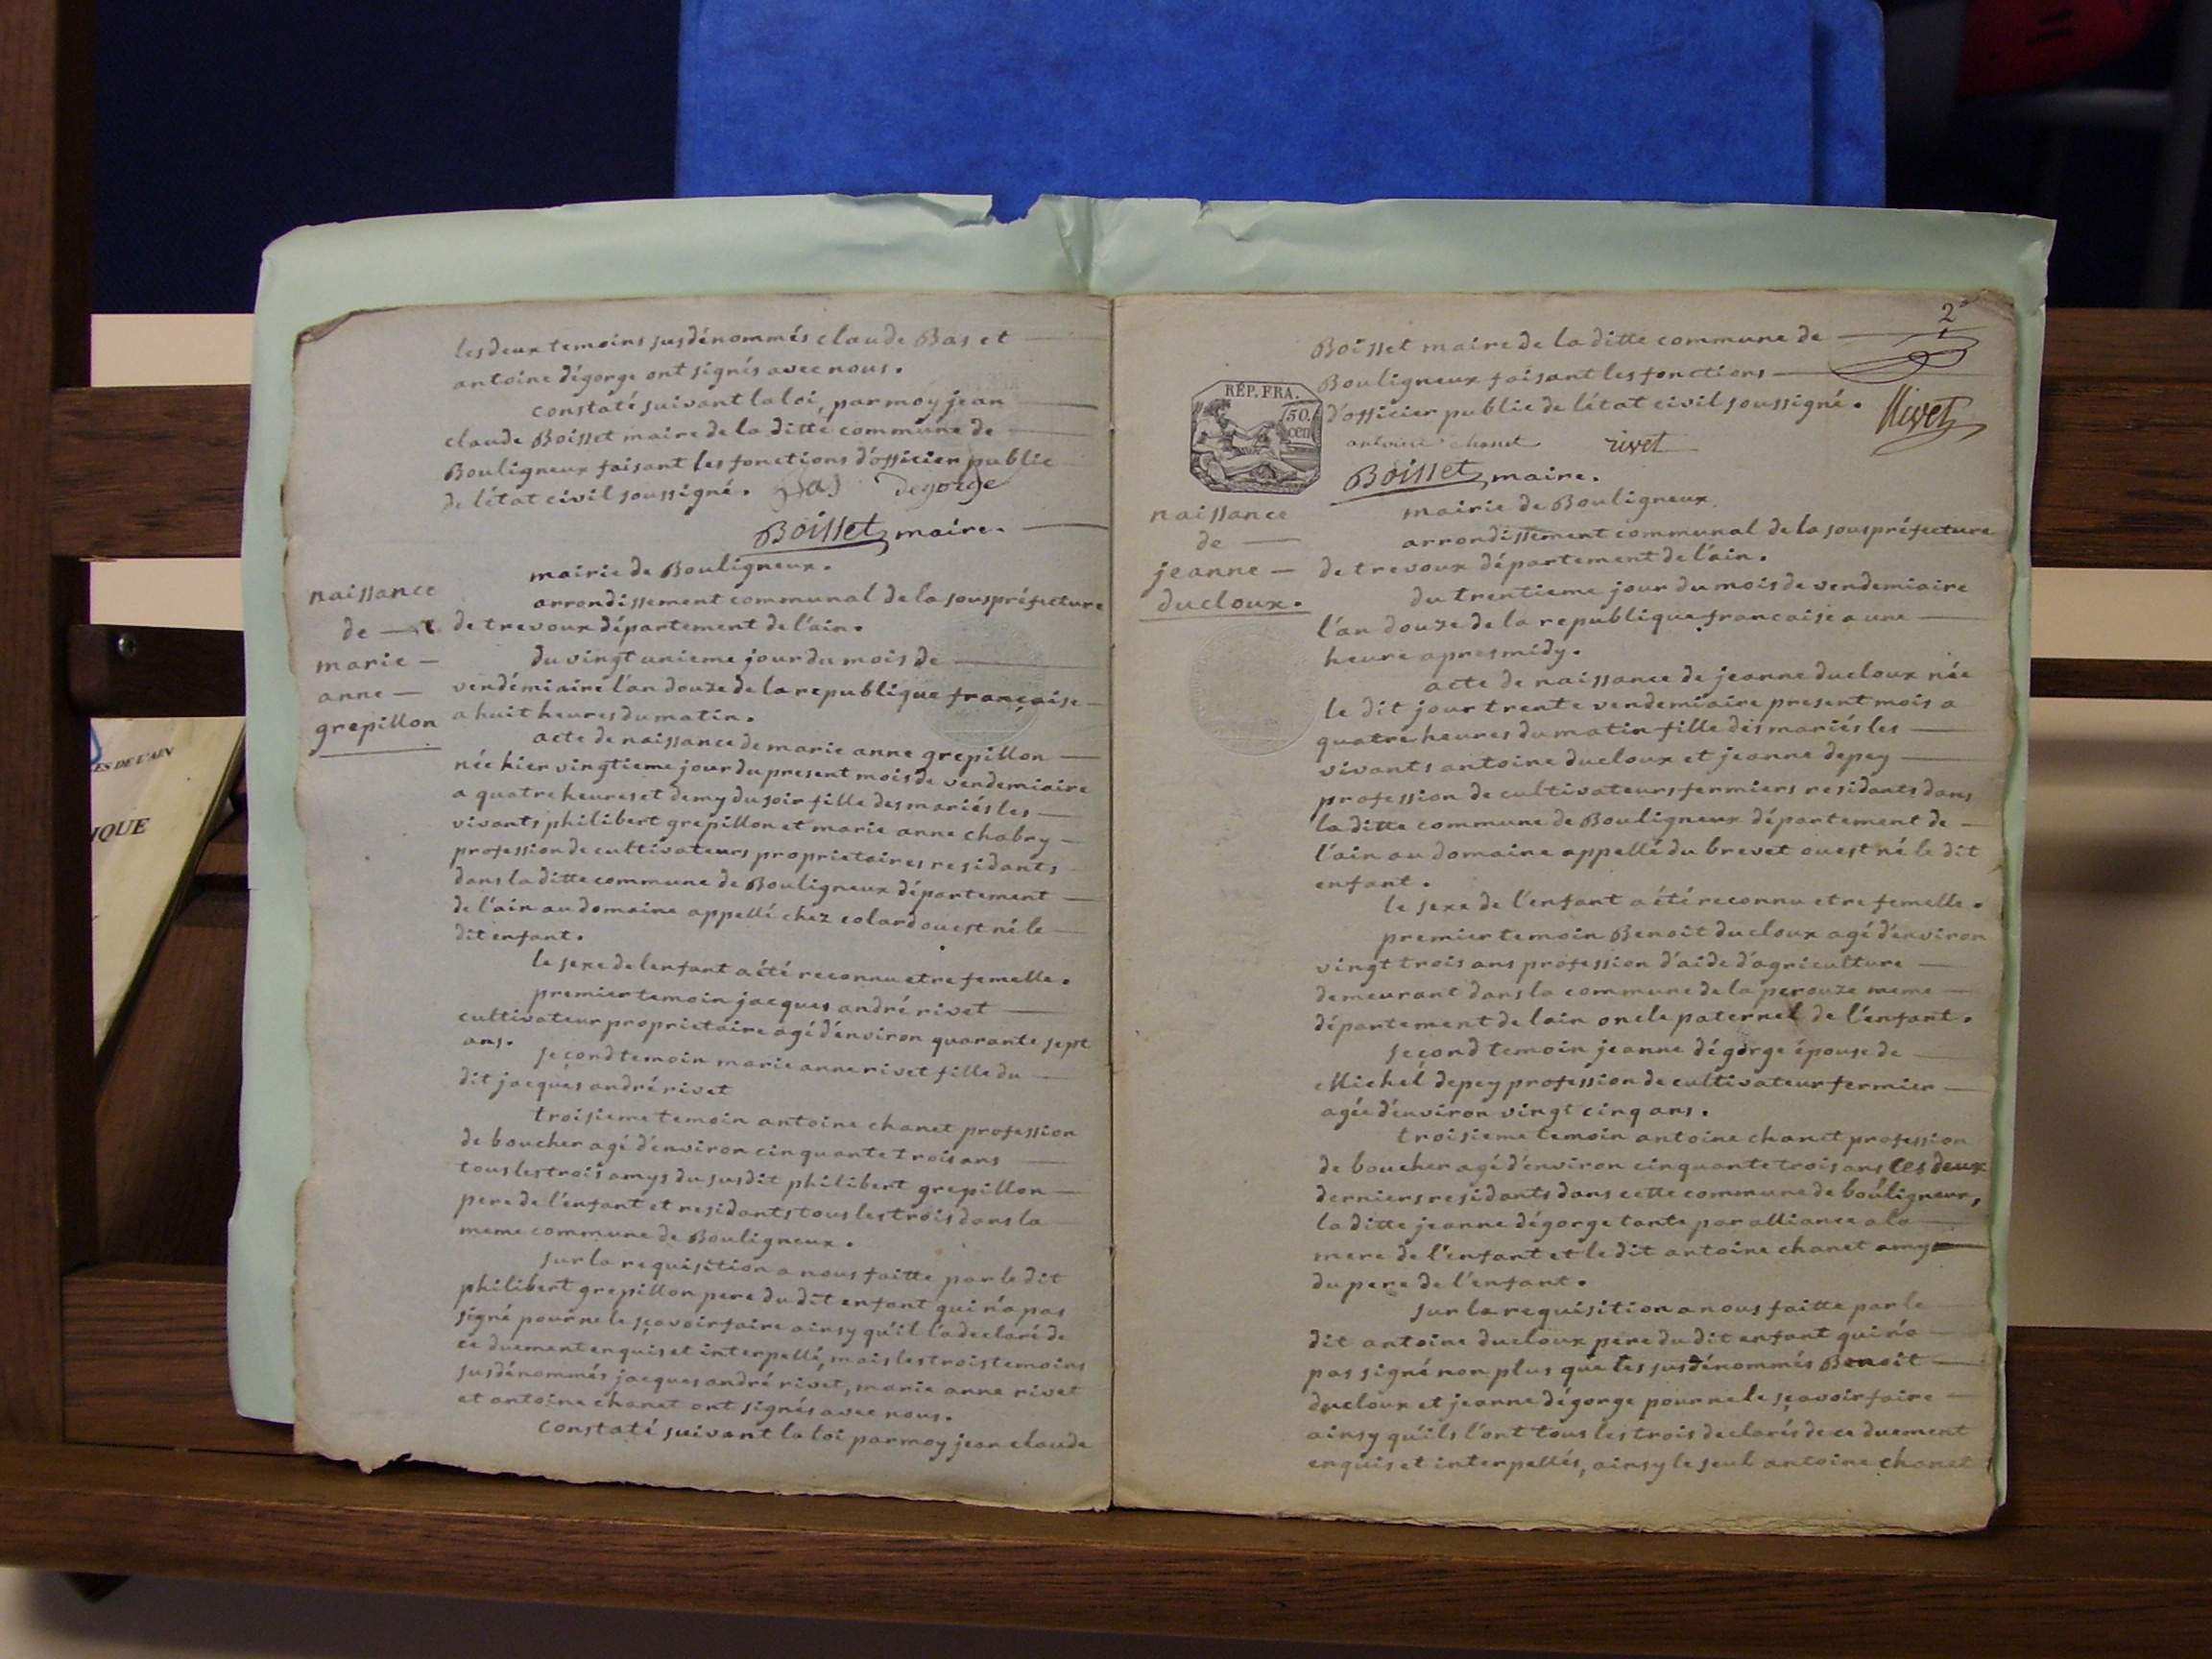 les deux temoins susdénommés claude Bas et
antoine dégorge ont signés avec nous.
constaté suivant la loi, par moy jean
claude Boisset maire de la ditte commune de
Bouligneux faisant les fonctions d'officier public
de l'état civil soussigné. Bas degorge
Boisset maire.
naissance
de
marie
anne
grepillon
mairie de Bouligneux.
arrondissement communal de la souspréfecture
de trevoux département de l'ain.
du vingt unieme jour du mois de
vendémiaire l'an douze de la republique française
a huit heures du matin.
acte de naissance de marie anne grepillon
née hier vingtieme jour du present mois de vendemiaire
a quatre heures et demy du soir fille des mariés les
vivants philibert grepillon et marie anne chabry
profession de cultivateurs proprietaires residants
dans la ditte commune de Bouligneux département
de l'ain au domaine appellé chez colard ou est né le
dit enfant.
le sexe de lenfant a été reconnu etre femelle.
premier temoin jacques andré rivet
cultivateur proprietaire agé d'environ quarante sept
ans.
second temoin marie anne rivet fille du
dit jacques andré rivet
troisieme temoin antoine chanet profession
de boucher agé d'environ cinquante trois ans
tous les trois amys du susdit philibert grepillon
pere de l'enfant et residants tous les trois dans la
meme commune de Bouligneux.
sur la requisition a nous faitte par le dit
philibert grepillon pere du dit enfant qui n'a pas
signé pour ne le sçavoir faire ainsy qu'il l'a declaré de
ce duement enquis et interpellé, mais les trois temoins
susdénommés jacques andré rivet, marie anne rivet
et antoine chanet ont signés avec nous.
constaté suivant la loi par moy jean claude
2e
Boisset maire de la ditte commune de
Bouligneux faisant les fonctions
d'officier public de l'état civil soussigné.
Rivet
antoine chanet rivet
Boisset maire.
RÉP. FRA.
50.
cen
naissance
de
jeanne
ducloux.
mairie de Bouligneux.
arrondissement communal de la souspréfecture
de trevoux département de l'ain.
du trentieme jour du mois de vendemiaire
l'an douze de la republique francaise a une
heure apres midy.
acte de naissance de jeanne ducloux née
le dit jour trente vendemiaire present mois a
quatre heures du matin fille des mariés les
vivants antoine ducloux et jeanne depey
profession de cultivateurs fermiers residants dans
la ditte commune de Bouligneux département de
l'ain au domaine appellé du brevet ou est né le dit
enfant.
le sexe de l'enfant a été reconnu etre femelle.
premier temoin Benoit ducloux agé d'environ
vingt trois ans profession d'aide d'agriculture
demeurant dans la commune de la perouze meme
département de lain oncle paternel de l'enfant.
second temoin jeanne dégorge épouse de
Michel depey profession de cultivateur fermier
agée d'environ vingt cinq ans.
troisieme temoin antoine chanet profession
de boucher agé d'environ cinquante trois ans les deux
derniers residants dans cette commune de bouligneux,
la ditte jeanne dégorge tante par alliance a la
mere de l'enfant et le dit antoine chanet amy
du pere de l'enfant.
sur la requisition a nous faitte par le
dit antoine ducloux pere du dit enfant qui n'a
pas signé non plus que les susdénommés Benoit
ducloux et jeanne dégorge pour ne le sçavoir faire
ainsy qu'ils l'ont tous les trois declarés de ce duement
enquis et interpellés, ainsy le seul antoine chanet
ES DE L'AIN
IQUE